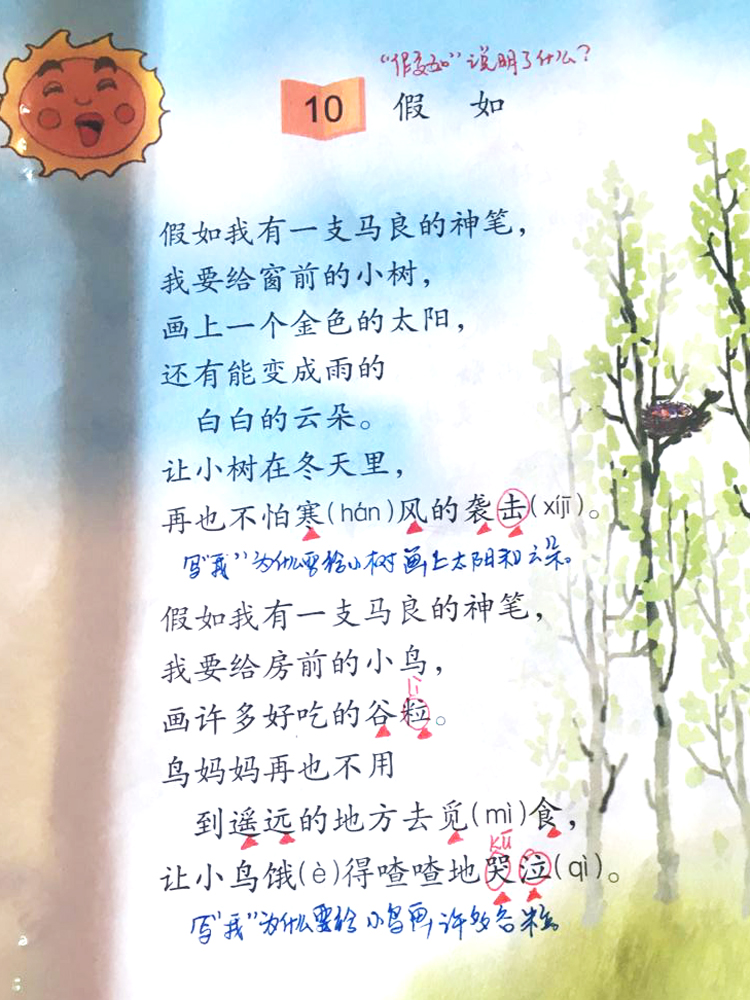 “假如”说明了什么？
10 假 如
假如我有一支马良的神笔，
我要给窗前的小树，
画上一个金色的太阳，
还有能变成雨的
白白的云朵。
让小树在冬天里，
再也不怕寒(hán)风的袭击(xíjī)。
写“我”为什么要给小树画上太阳和云朵。
假如我有一支马良的神笔，
我要给房前的小鸟，
lì
画许多好吃的谷粒。
鸟妈妈再也不用
到遥远的地方去觅(mì)食，
kū
让小鸟饿(è)得喳喳地哭泣(qì)。
写“我”为什么要给小鸟画许多谷粒。